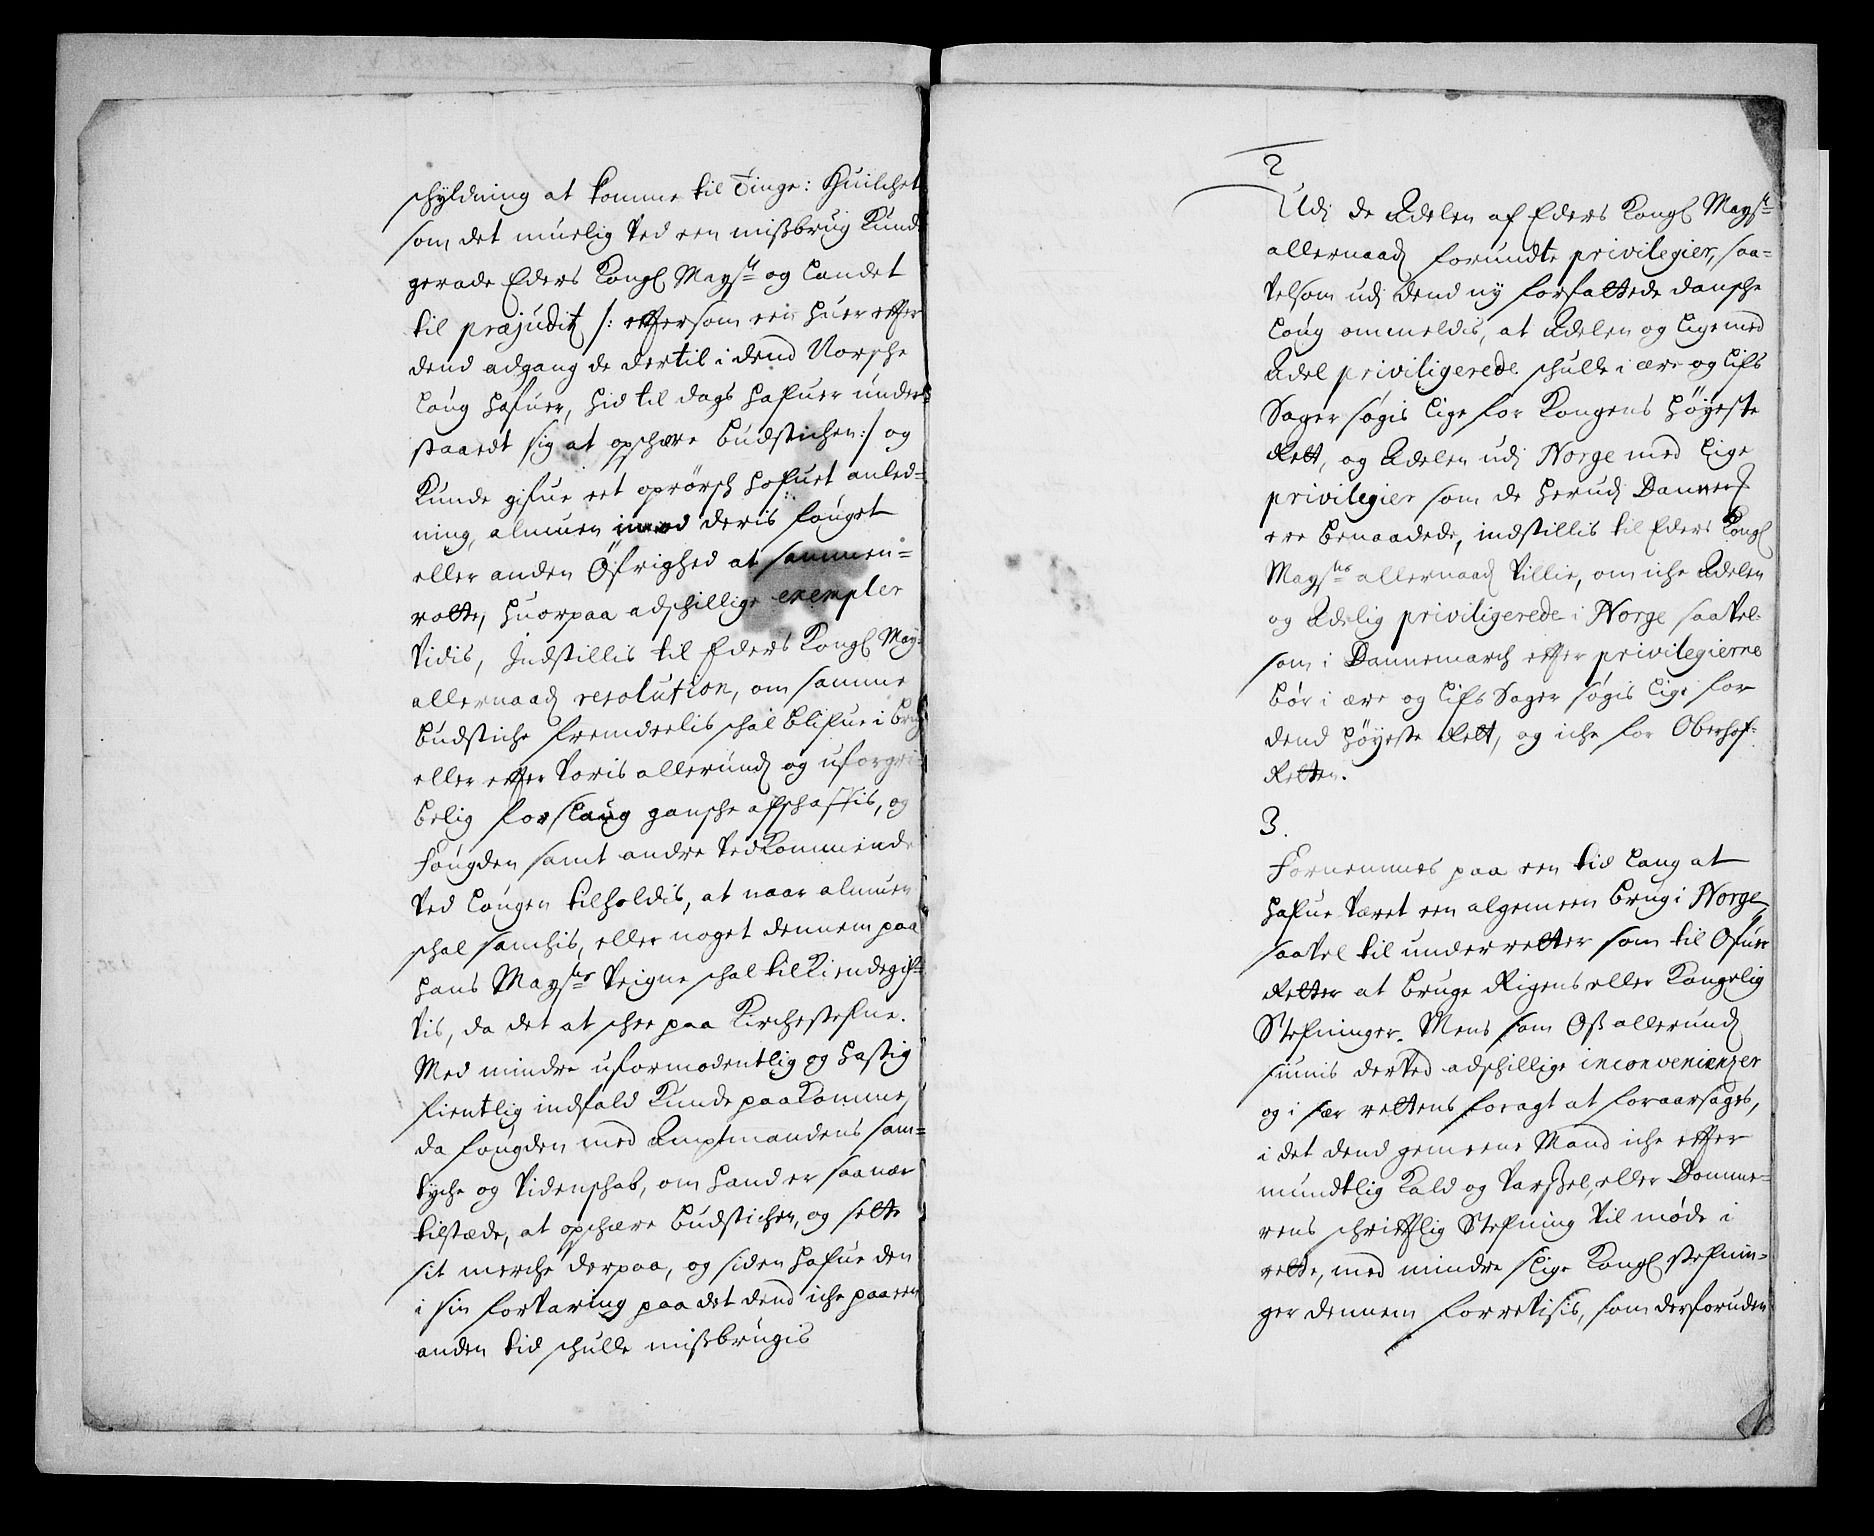 schyldning at komme til Tinge: Huilchet
som det muelig ved een missbrug kunde
gerade Eders Kongl Mayst og Landet
til præjuditz /: effterson een huer effter
dend adgang de dertil i dend Norsche
Loug hafuer, hid til dags hafuer under-
staaedt sig at opschære budstichen :/ og
kunde gifue eet oprørsch hofuet anled-
ning, almuen imod deris fouget
eller anden Øfrighed at sammen-
rotte, huorpaa adschillige exempler
vidis, Indstillis til Eders Kongl May:
allernaad resolution, om samme
budstiche fremdeelis schal blifue i brug
eller effter voris allerund og uforgri-
belig forslaug gansche afschaffis, og
Fougden samt andre vedkommende
ved Lougen tilholdis, at naar almuen
schal samlis, eller noget dennem paa
hans Maysts veigne schal tilkiendegif-
vis, da det at schee paa Kirchestefne.
Med mindre uformodentlig og hastig
fientlig indfald kunde paakomme,
da fougden med Amptmandens sam-
tyche og videnschab, om hand er saa nær
tilstæde, at opschære budstichen, og sette
sit merche derpaa, og siden hafue den
i sin forvaring paa det dend iche paa een
anden tid schulle missbrugis
2
Udi de Adelen af Eders Kongl Mayst
allernaad forundte privilegier, saa-
velsom udi dend ny forfattede dansche
Loug ommeldis, at Adelen og lige med
Adel priviligerede schulle i ære og lifs
Sager søgis lige for Kongens høyeste
Rett, og Adelen udi Norge med lige
privilegier som de herudi Dannerk
ere benaadede, indstillis til Eders Kongl
Maysts allernaad villie, om iche Adelen
og Adelig priviligerede i Norge saavel-
som i Dannemarch effter privilegierne
bør i ære og lifs Sager søgis lige for
dend høyeste Rett, og iche for Oberhof-
Retten.
3.
Fornemmes paa een tid lang at
hafue været een algemeen brug i Norge,
saavel til underretter som til Ofuer
Retter at bruge Rigens eller Kongelig
Stefninger. Mens som Oss allerund
siunis derved adschillige inconvenienzer
og i sær rettens foragt at foraarsages,
i det dend gemeene Mand iche effter
mundtlig Kald og varssel, eller Domme-
rens schrifftlig Stefning vil møde i
rette, med mindre slige Kongl stefnin-
ger dennem forrevisis, som desforuden